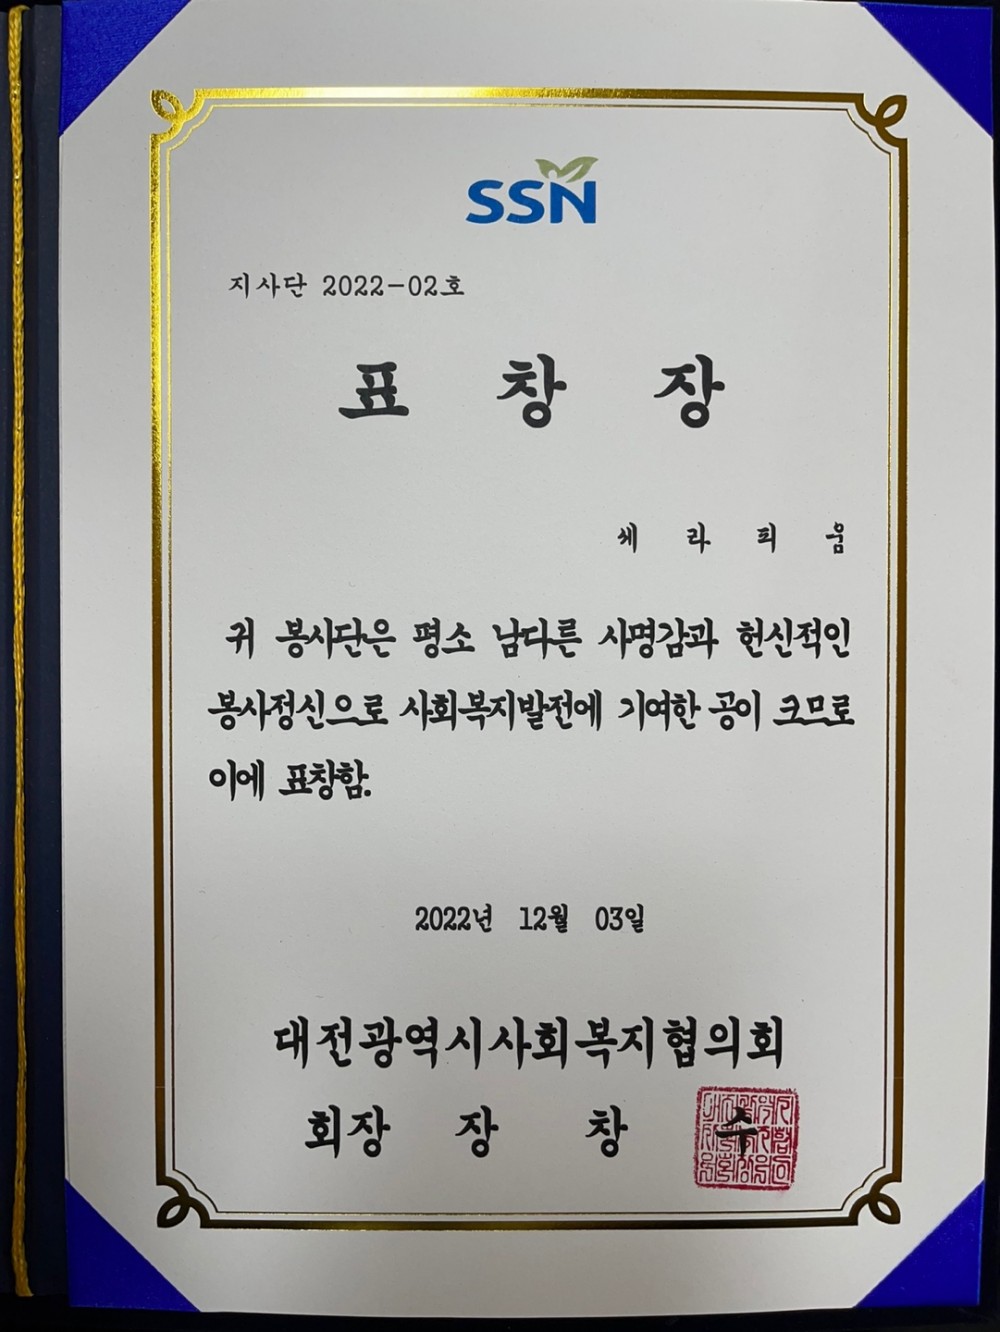 SSN
지사단 2022-02호
표 창 장
세 라 피 움
귀 봉사단은 평소 남다른 사명감과 헌신적인
봉사정신으로 사회복지발전에 기여한 공이 크므로
이에 표창함.
2022년 12월 03일
대전광역시사회복지협의회
회장 장 창 수